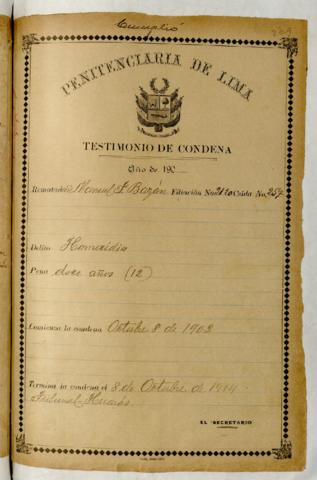 Cumplió
PENITENCIARIA DE LIMA
TESTIMONIO DE CONDENA
Año de 190
Rematado Manuel F. Bazán Filiación No. 2120 Celda No. 257
Delito Homicidio
Pena doce años (12)
Comienza la condena Octubre 8 de 1902
Termina la condena el 8 de Octubre de 1914.
Tribunal-Huaráz
EL SECRETARIO